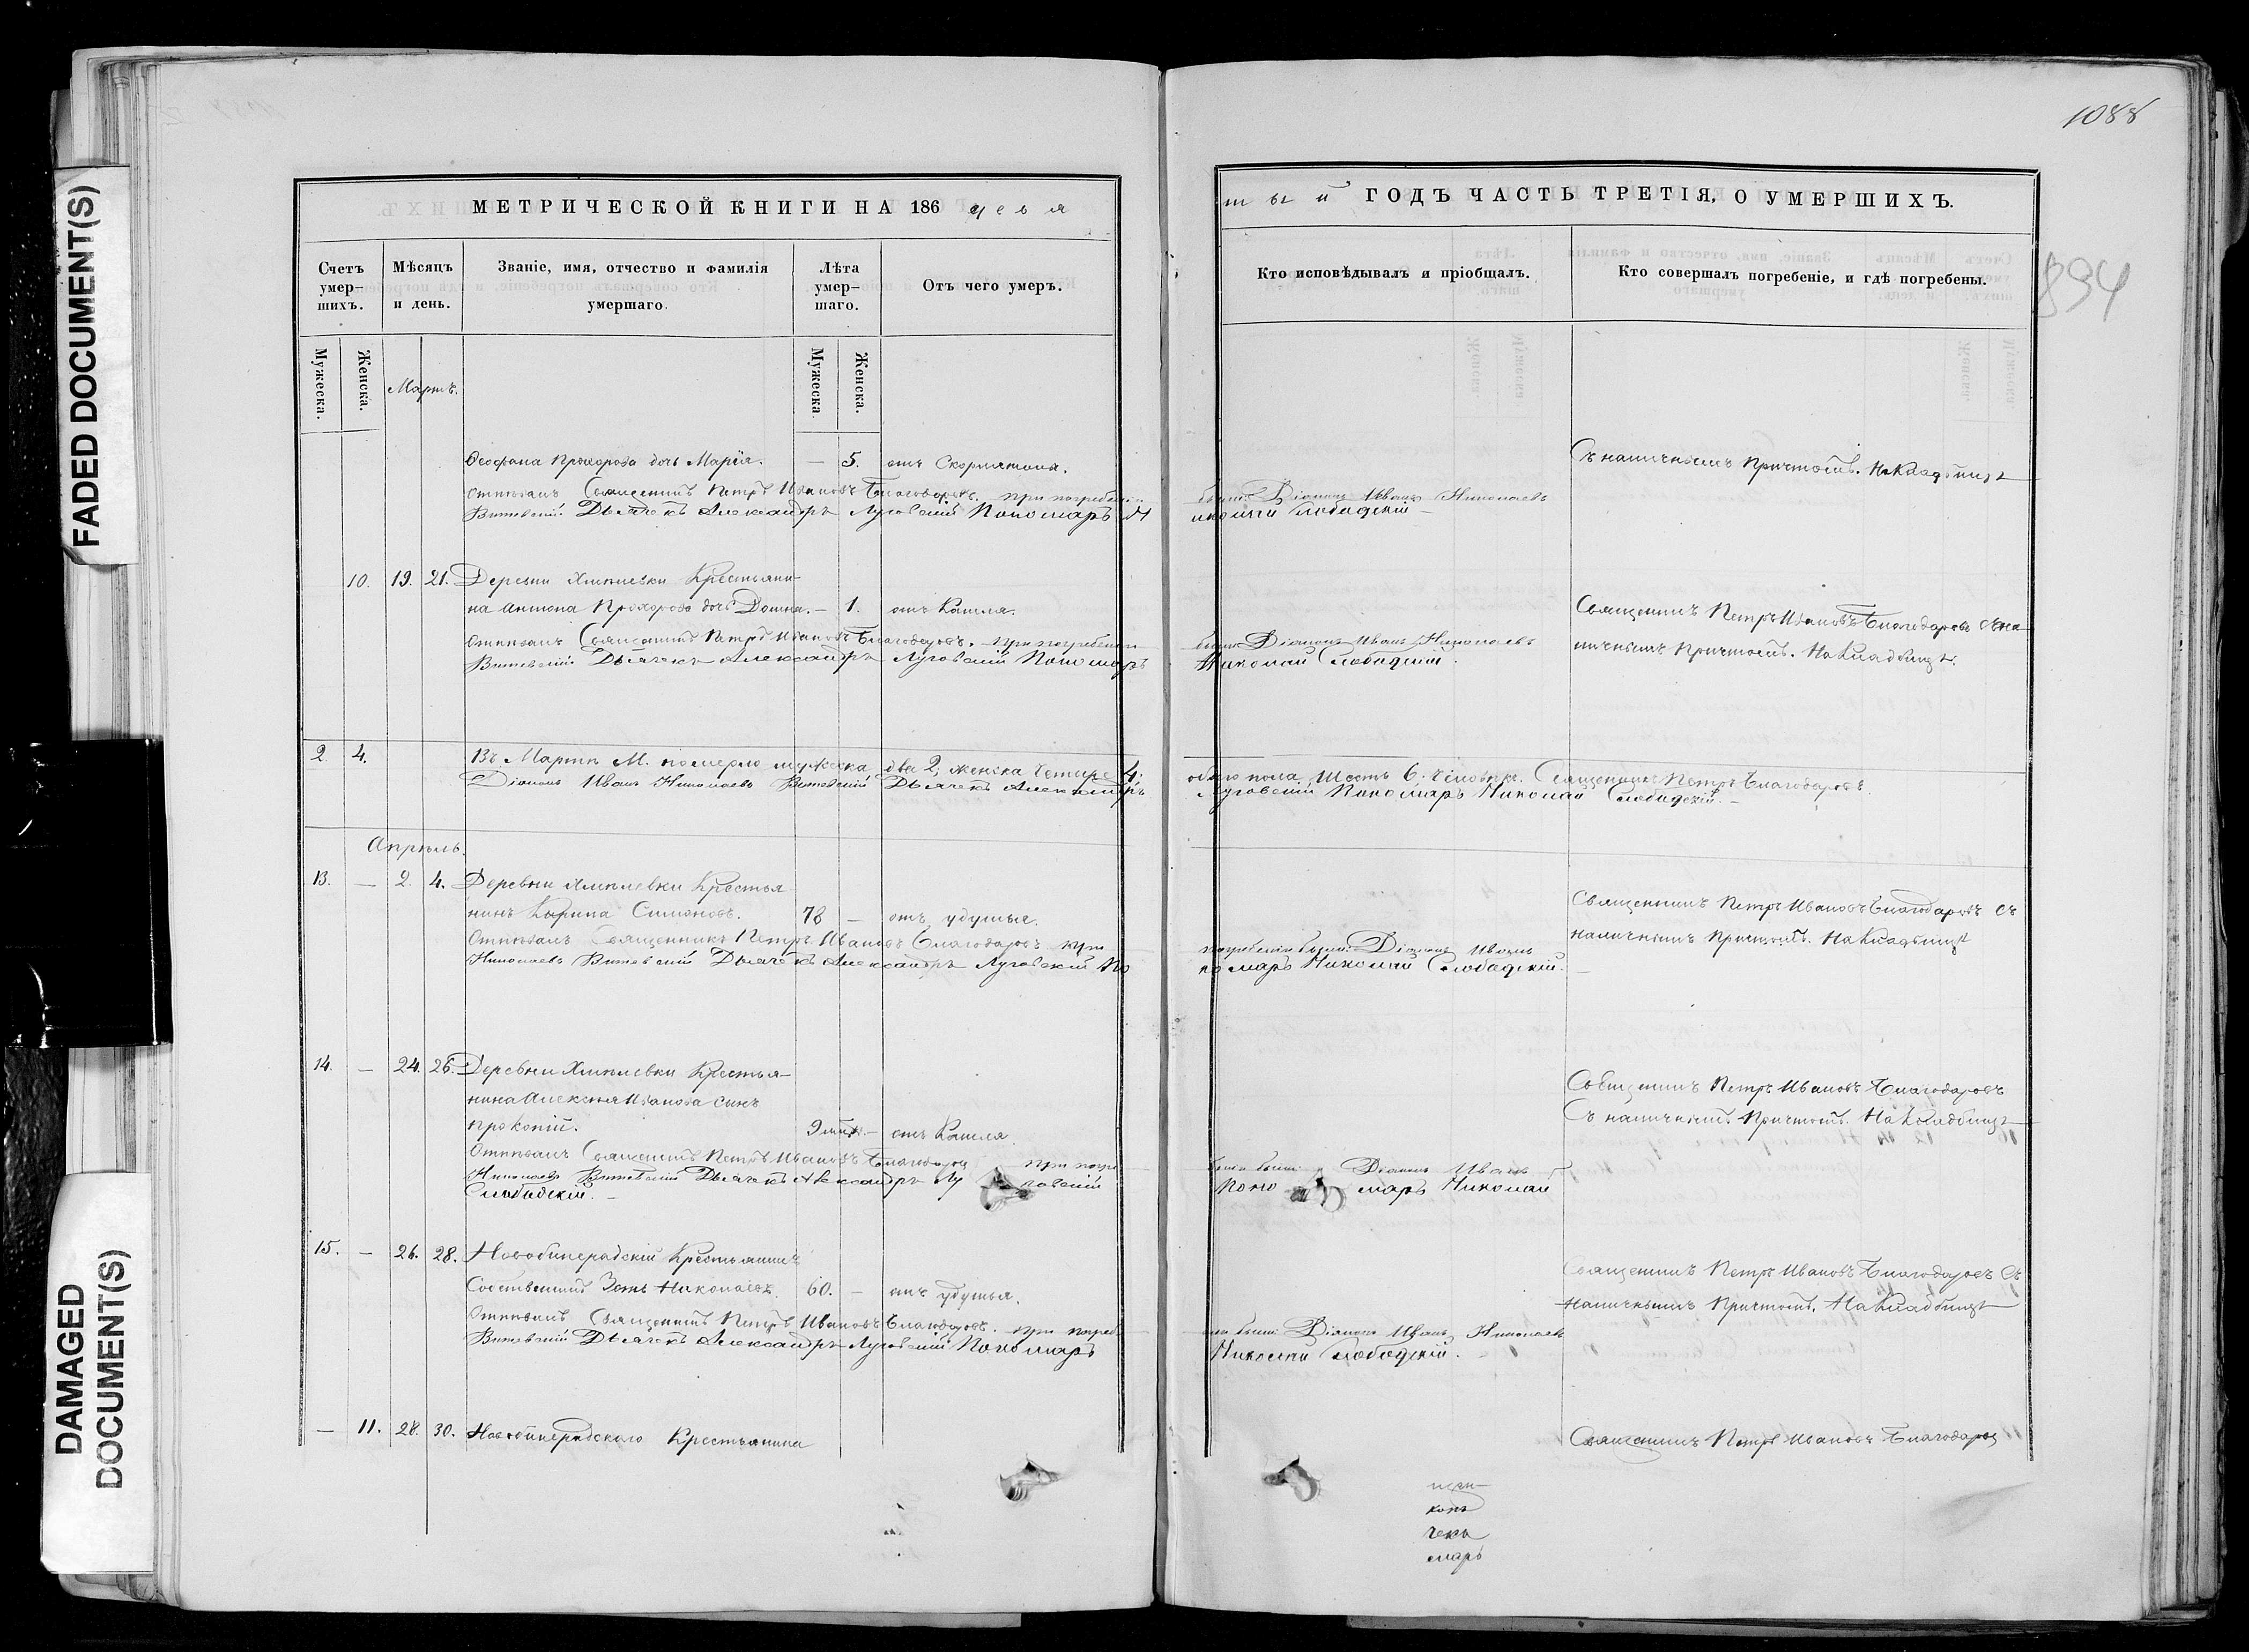 FADED DOCUMENT(S)
DAMAGED
DOCUMENT(S)
МЕТРИЧЕСКОЙ КНИГИ НА 186 девя
Счетъ умер-шихъ.
Мѣсяцъ и день.
Званіе, имя, отчество и фамилія умершаго.
Лѣта умер-шаго.
Отъ чего умеръ.
Мужеска.
Женска.
Мартъ.
Мужеска
Женска.
Ѳеофана Прохорова дочь Марія. — 5. отъ
Отпѣвалъ Священникъ Петръ Ивановъ Благодаровъ. при погребеніи
Дьячекъ Александръ Луговскій Пономарь Н
10. 19. 21. Деревни Крестьяни-
на Антона Прохорова дочь Домна. — 1. отъ Кашля.
Отпѣвалъ Священникъ Петръ Ивановъ Благодаровъ. при погребеніи
Дьячекъ Александръ Луговскій Пономарь
2 4. Въ Мартѣ М. померло мужеска два 2, женска Четыре 4.
Діаконъ Иванъ Николаевъ Дьячекъ Александръ
Апрѣль.
13. — 2. 4. Деревни Крестья
нинъ Симоновъ. 78 — отъ удушья.
Отпѣвалъ Священникъ Петръ Ивановъ Благодаровъ при
Николаевъ Дьячекъ Александръ Луговскій По
14. — 24. 26. Деревни Крестья-
нина Алексѣя Иванова сынъ
Прокопій. — отъ Кашля.
Отпѣвалъ Священникъ Петръ Ивановъ Благодаров при погре
Николаевъ Дьячекъ Александръ Лу говскій
Слободскій. —
15. — 26. 28. Новобинарадскій Крестьянинъ
Собственникъ Зотъ Николаевъ. 60. — отъ удушья.
Отпѣвалъ Священникъ Петръ Ивановъ Благодаровъ. при погреб
Дьячекъ Александръ Луговскій Пономарь
— 11. 28. 30. Новобинарадскаго Крестьянина
1088
894
тый ГОДЪ ЧАСТЬ ТРЕТІЯ, О УМЕРШИХЪ.
Кто исповѣдывалъ и пріобщалъ.
Кто совершалъ погребеніе, и гдѣ погребены.
Съ наличнымъ Причтомъ. На Кладбищѣ
были: Діаконъ Иванъ Николаевъ
иколай Слободскій —
Священникъ Петръ Ивановъ Благодаровъ съ на-
личнымъ Причтомъ. На Кладбищѣ.
были: Діаконъ Иванъ Николаевъ
Николай Слободскій.
обоего пола Шесть 6. человѣкъ. Священникъ Петръ Благодаровъ.
Луговскій Пономарь Николай Слободскій. —
Священникъ Петръ Ивановъ Благодаровъ съ
наличнымъ Причтомъ. На Кладбищѣ
погребеніи были: Діаконъ Иванъ
номарь Николай Слободскій. —
Священникъ Петръ Ивановъ Благодаровъ
Съ наличнымъ Причтомъ. На Кладбищѣ
были: Діаконъ Иванъ
Поно марь Николай
Священникъ Петръ Ивановъ Благодаровъ Съ
наличнымъ Причтомъ. На Кладбищѣ
были: Діаконъ Иванъ Николаевъ
Николай Слободскій.
Священникъ Петръ Ивановъ Благодаров
щен-
конъ
чекъ
марь